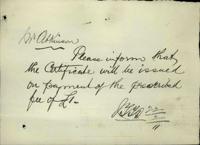 Mr Atkinson
Please inform that
the Certificate will be issued
on payment of the prescribed
fee of £1.